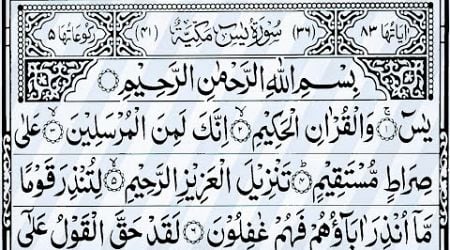 اٰیَاتُهَا ٨٣ (٣٦) سُوْرَةُ یٰسٓ مَكِّيَّةٌ (٤١) رُكُوْعَاتُهَا ٥
بِسْمِ اللهِ الرَّحْمٰنِ الرَّحِيْمِ
یٰسٓ ۝١ وَالْقُرْاٰنِ الْحَكِيْمِ ۝٢ اِنَّكَ لَمِنَ الْمُرْسَلِيْنَ ۝٣ عَلٰى
صِرَاطٍ مُّسْتَقِيْمٍ ۝٤ تَنْزِيْلَ الْعَزِيْزِ الرَّحِيْمِ ۝٥ لِتُنْذِرَ قَوْمًا
مَّاۤ اُنْذِرَ اٰبَآؤُهُمْ فَهُمْ غٰفِلُوْنَ ۝٦ لَقَدْ حَقَّ الْقَوْلُ عَلٰۤى